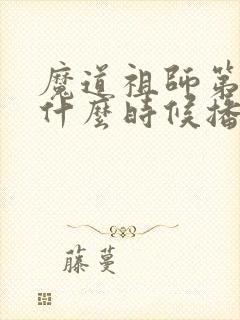 魔道祖師第
什麼時候播
藤蔓